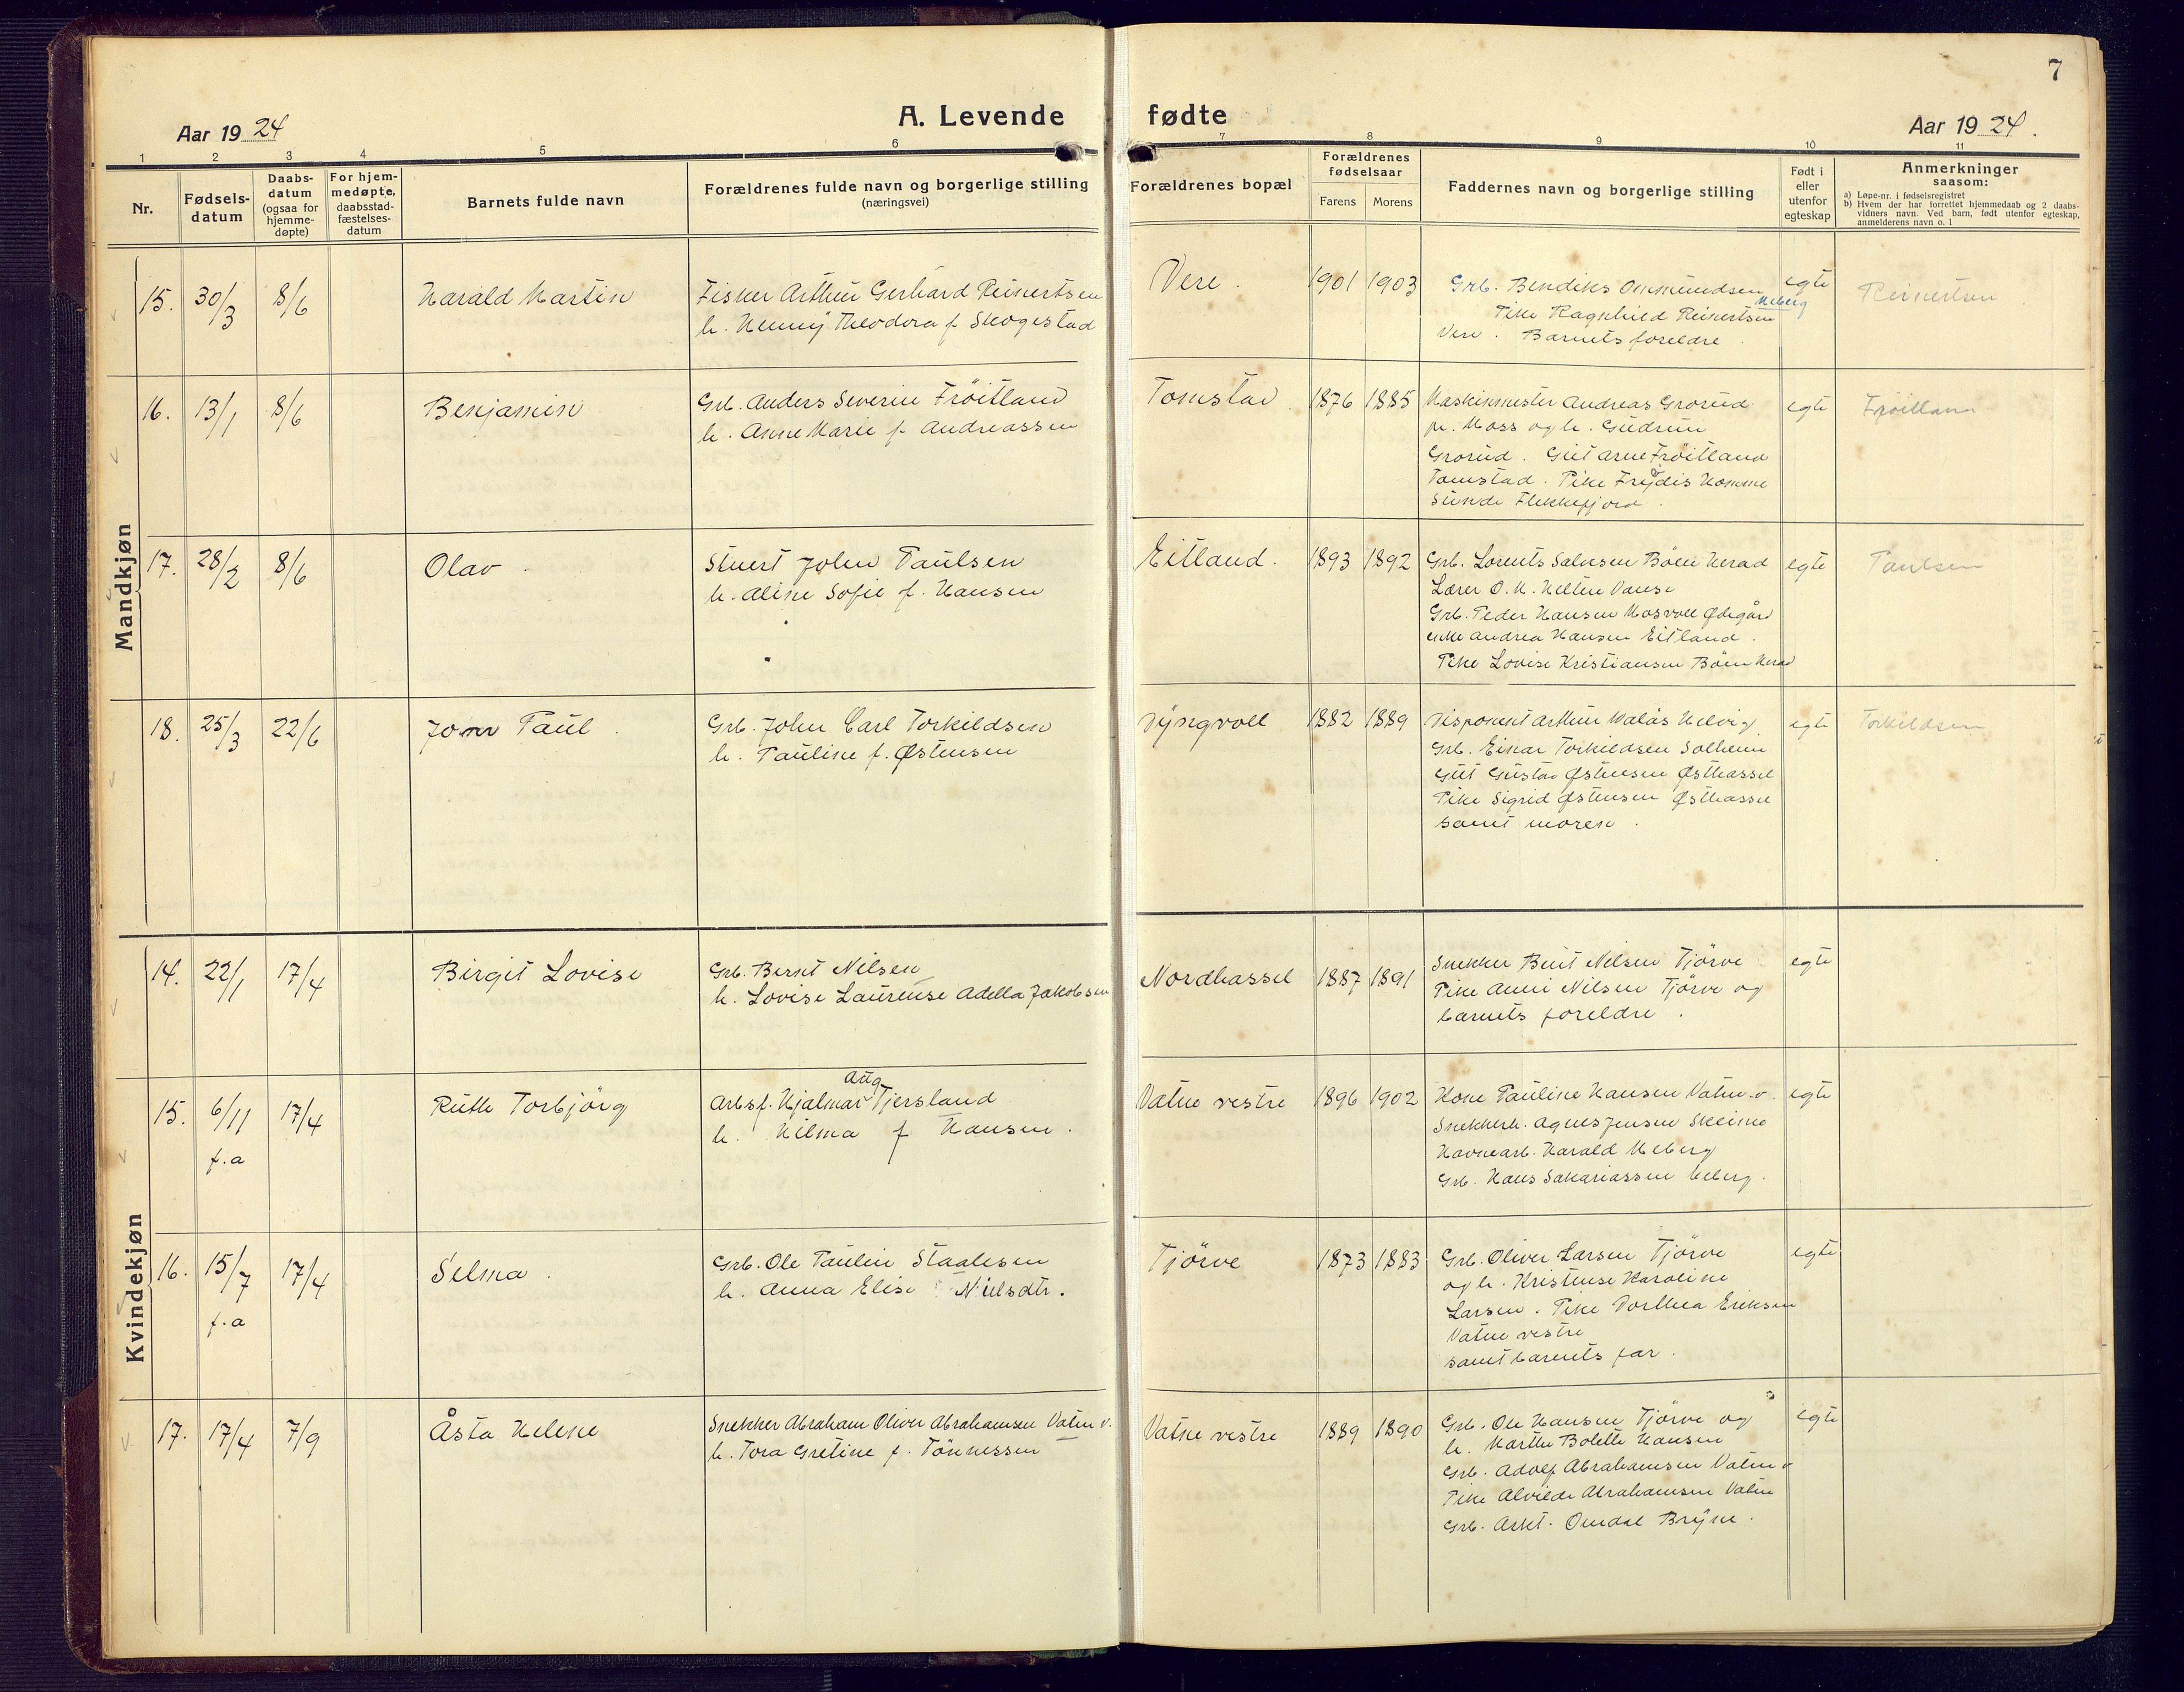 7
A. Levende fødte
Aar 1924
Aar 1924.
1 2 3 4 5 6 7 8 9 10 11
Nr.
Fødsels-
datum
Daabs-
datum
(ogsaa for
hjemme-
døpte)
For hjem-
medøpte,
daabsstad-
fæstelses-
datum
Barnets fulde navn
Forældrenes fulde navn og borgerlige stilling
(næringsvei)
Forældrenes bopæl
Forældrenes
fødselsaar
Farens Morens
Faddernes navn og borgerlige stilling
Født i
eller
utenfor
egteskap
Anmerkninger
saasom:
a) Løpe-nr. i fødselsregistret
b) Hvem der har forrettet hjemmedaab og 2 daabs-
vidners navn. Ved barn, født utenfor egteskap,
anmelderens navn o. l
Mandkjøn
15. 30/3 8/6 Harald Martin
Fisker Arthur Gerhard Reinertsen
h. Henny Theodora f. Skogestad
Vere. 1901 1903
Grb. Bendiks Ommundsen
Meberg
Pike Ragnhild Reinertsen
Vere. Barnets foreldre.
egte
Reinertsen
16. 13/1 8/6 Benjamin
Grb. Anders Severin Frøitland
h. Anne Marie f. Andreassen
Tomstad. 1876 1885
Maskinmester Andreas Grorud
pr. Moss og h. Gudrun
Grorud. Gut Arne Frøitland
Tomstad. Pike Frøydis Homme
Sunde Flekkefjord.
egte
Frøitland
17. 28/2 8/6 Olav.
Stuert John Paulsen
h. Aline Sofie f. Hansen
Eitland. 1893 1892
Grb. Lorents Salvesen Bøen Herad
Lærer O. M. Vanse
Grb. Peder Hansen Mosvoll Ødegård
enke Andrea Hansen Eitland.
Pike Lovise Kristiansen Bøen Herad
egte
Paulsen
18. 25/3 22/6 John Paul.
Grb. John Carl Torkildsen
h. Pauline f. Østensen
Dyngvoll 1882 1889
Disponent Arthur Helvig
Grb. Einar Torkildsen Solheim
Gut Gustav Østensen Østhassel
Pike Sigrid Østensen Østhassel
samt moren.
egte
Torkildsen
Kvindekjøn
14. 22/1 17/4 Birgit Lovise
Grb. Bernt Nilsen
h. Lovise Laurense Adella Jakobsen
Nordhassel 1887 1891
Snekker Berit Nilsen Tjörve
Pike Anni Nilsen Tjörve og
barnets foreldre.
egte
15. 6/11 17/4 Ruth Torbjörg
f.a
Aug
Arbsf. Hjalmar Tjersland
h. Hilma f Hansen.
Vatne vestre 1896 1902
Kone Pauline Hansen Vatne v.
Snekkerh. Agnes Jensen Skeime
Havnearb. Harald Meberg
Grb. Hans Sakariassen Meberg.
egte
16. 15/7 17/4 Selma.
f.a
Grb. Ole Paulin Staalesen
h. Anna Elise Nielsdtr.
Tjörve 1873 1883
Grb. Oliver Larsen Tjörve
og h. Kristense Karoline
Larsen. Pike Dorthea Eriksen
Vatne vestre
samt barnets far.
egte
17. 17/4 7/9 Åsta Helene
Snekker Abraham Oliver Abrahamsen Vatne v.
h. Tora Gretine f. Tönnessen
Vatne vestre 1889 1890
Grb. Ole Hansen Tjörve og
h. Marthe Bolette Hansen
Grb. Adolf Abrahamsen Vatne v
Pike Alvilde Abrahamsen Vatne
Grb. Omdal Bryne.
egte